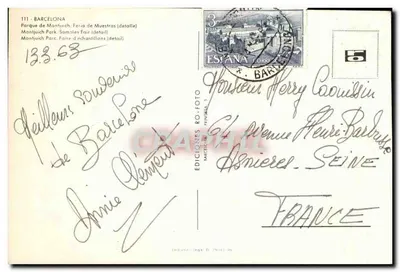 111 - BARCELONA
Parque de Montjuich. Feria de Muestras (detalle)
Montjuich Park. Samples Fair (detail)
Montjuich Parc. Foire d'échantillons (détail)
13.3.63
Meilleurs souvenirs
de Barcelone
Annie Clément
EDICIONES RO-FOTO
ESPAÑA
BARCELONA
5
Monsieur Henry
Avenue Henri-Barbusse
Asnieres - SEINE
FRANCE